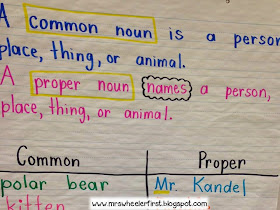 A common noun is a person
place, thing, or animal.
A proper noun names a person,
place, thing, or animal.
Common Proper
polar bear Mr. Kandel
kitten
www.mrswheelerfirst.blogspot.com